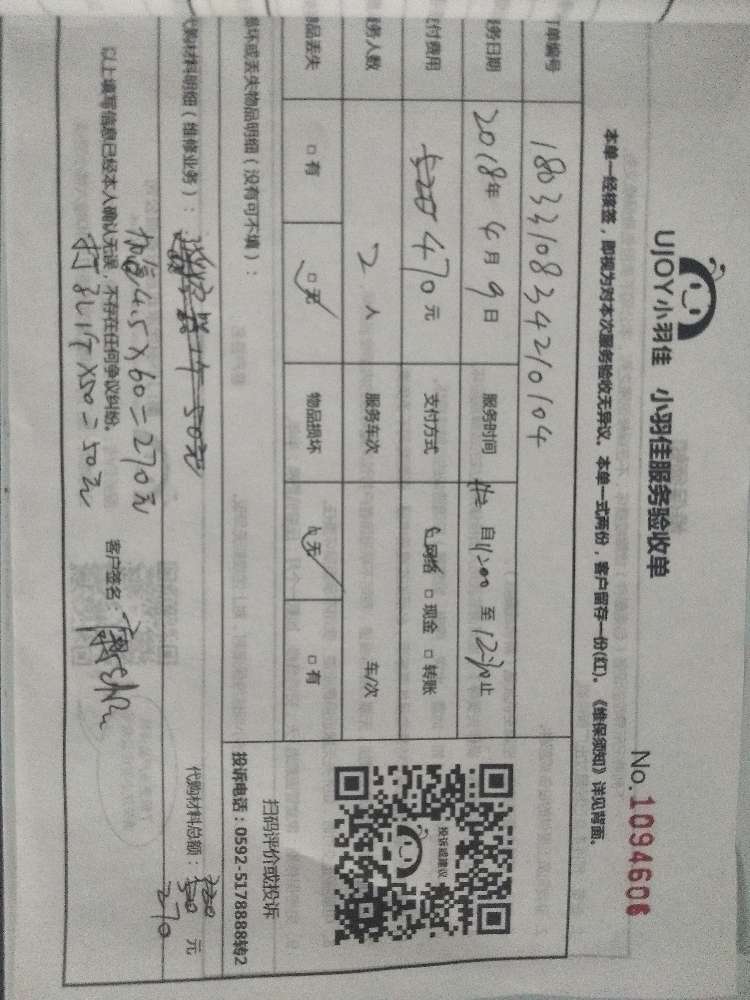 UJOY小羽佳 小羽佳服务验收单
No.1094606
本单一经接签，即视为对本次服务验收无异议。本单一式两份，客户留存一份(红)。《维保须知》详见背面。
订单编号 1803310834210104
服务日期 2018年 4月 9日 服务时间 自 11:00 至 12:30 止
支付费用 520 470元 支付方式 网络 □ 现金 □ 转账
服务人数 2 人 服务车次 车/次
物品丢失 □ 有 □ 无 物品损坏 □ 无 □ 有
损坏或丢失物品明细（没有可不填）：
投诉或建议
扫码评价或投诉
投诉电话：0592-5178888转2
代购材料明细（维修业务）：
1个 50元
代购材料总额： 270 元
4.5×60=270元
以上填写信息已经本人确认无误，不存在任何争议纠纷。
打孔1个×50=50元
客户签名：